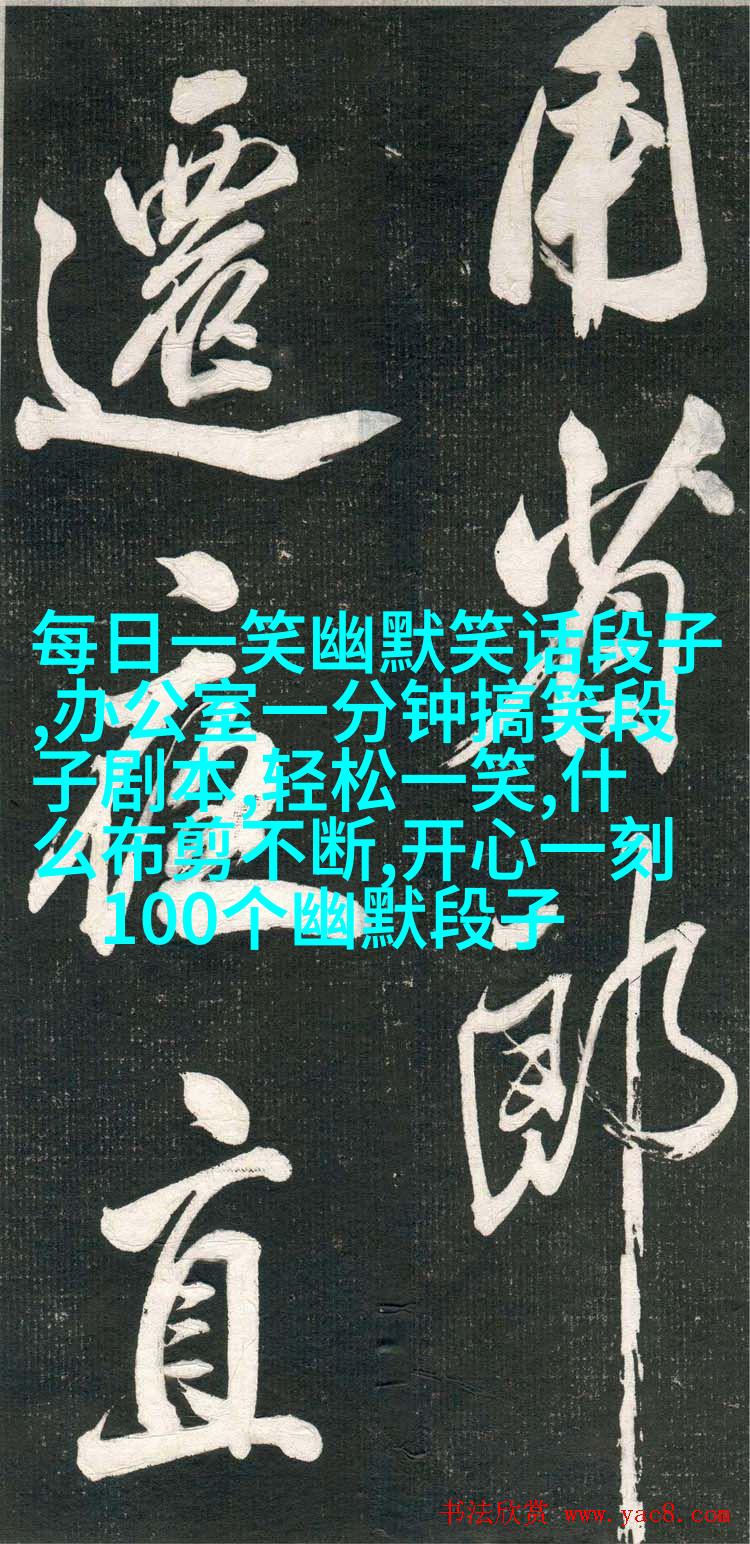 用省郎
遷夜直
每日一笑幽默笑话段子
,办公室一分钟搞笑段
子剧本,轻松一笑,什
么布剪不断,开心一刻
100个幽默段子
书法欣赏 www.yac8.com